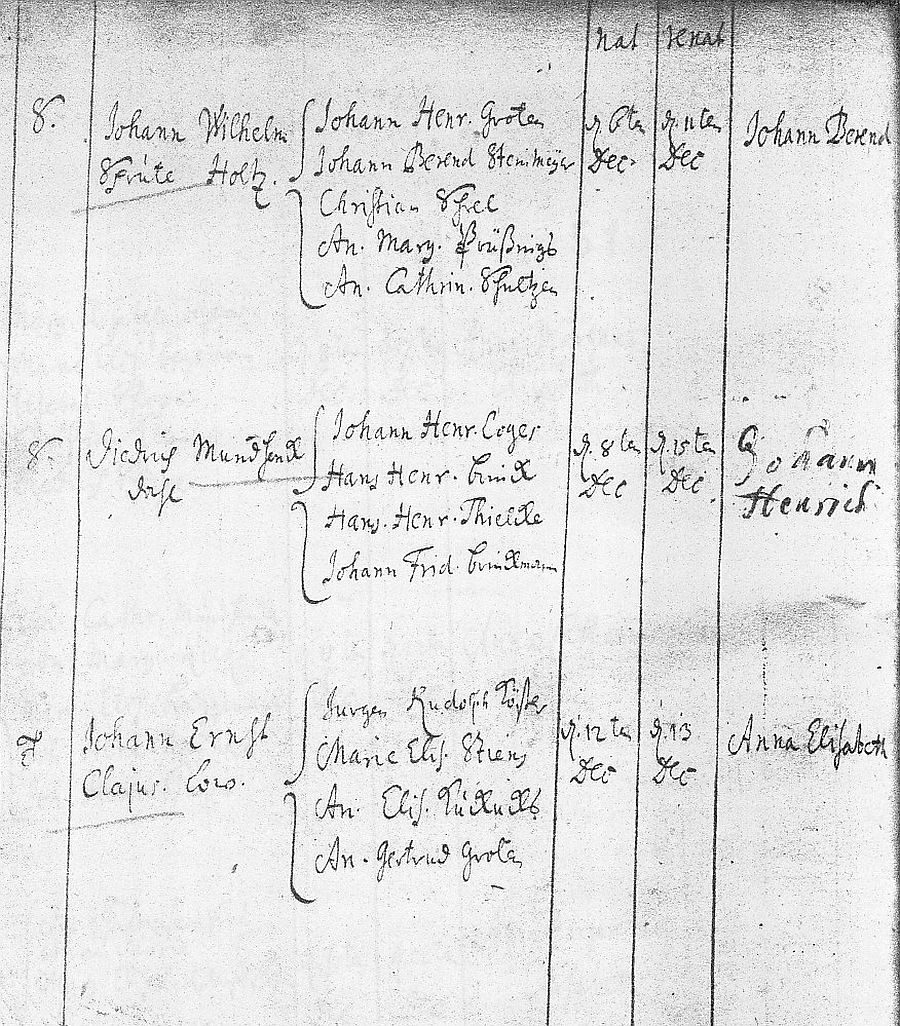 nat renat
8. Johann Wilhelm
Sprúte Holtz.
Johann Henr. Groten
Johann Berend Steinmeyer
Christian
An. Marg.
An. Cathrin. Schultzen
d. 6ten
Dec.
d. 11ten
Dec
Johann Berend
8 Diedrich
Johann Henr. Coger
Hans Henr. Brinck
Hans. Henr. Thielcke
Johann Frid. Brinckmann
d. 8ten
Dec
d. 15ten
Dec.
Johann
Henrich
Johann Ernst
Clajus.
Jurgen Rudolph Köster
Marie Elis. Stiens
An. Elis. Kuckucks
An. Gertrud Groten
d. 12ten
Dec
d. 13
Dec
Anna Elisabeth